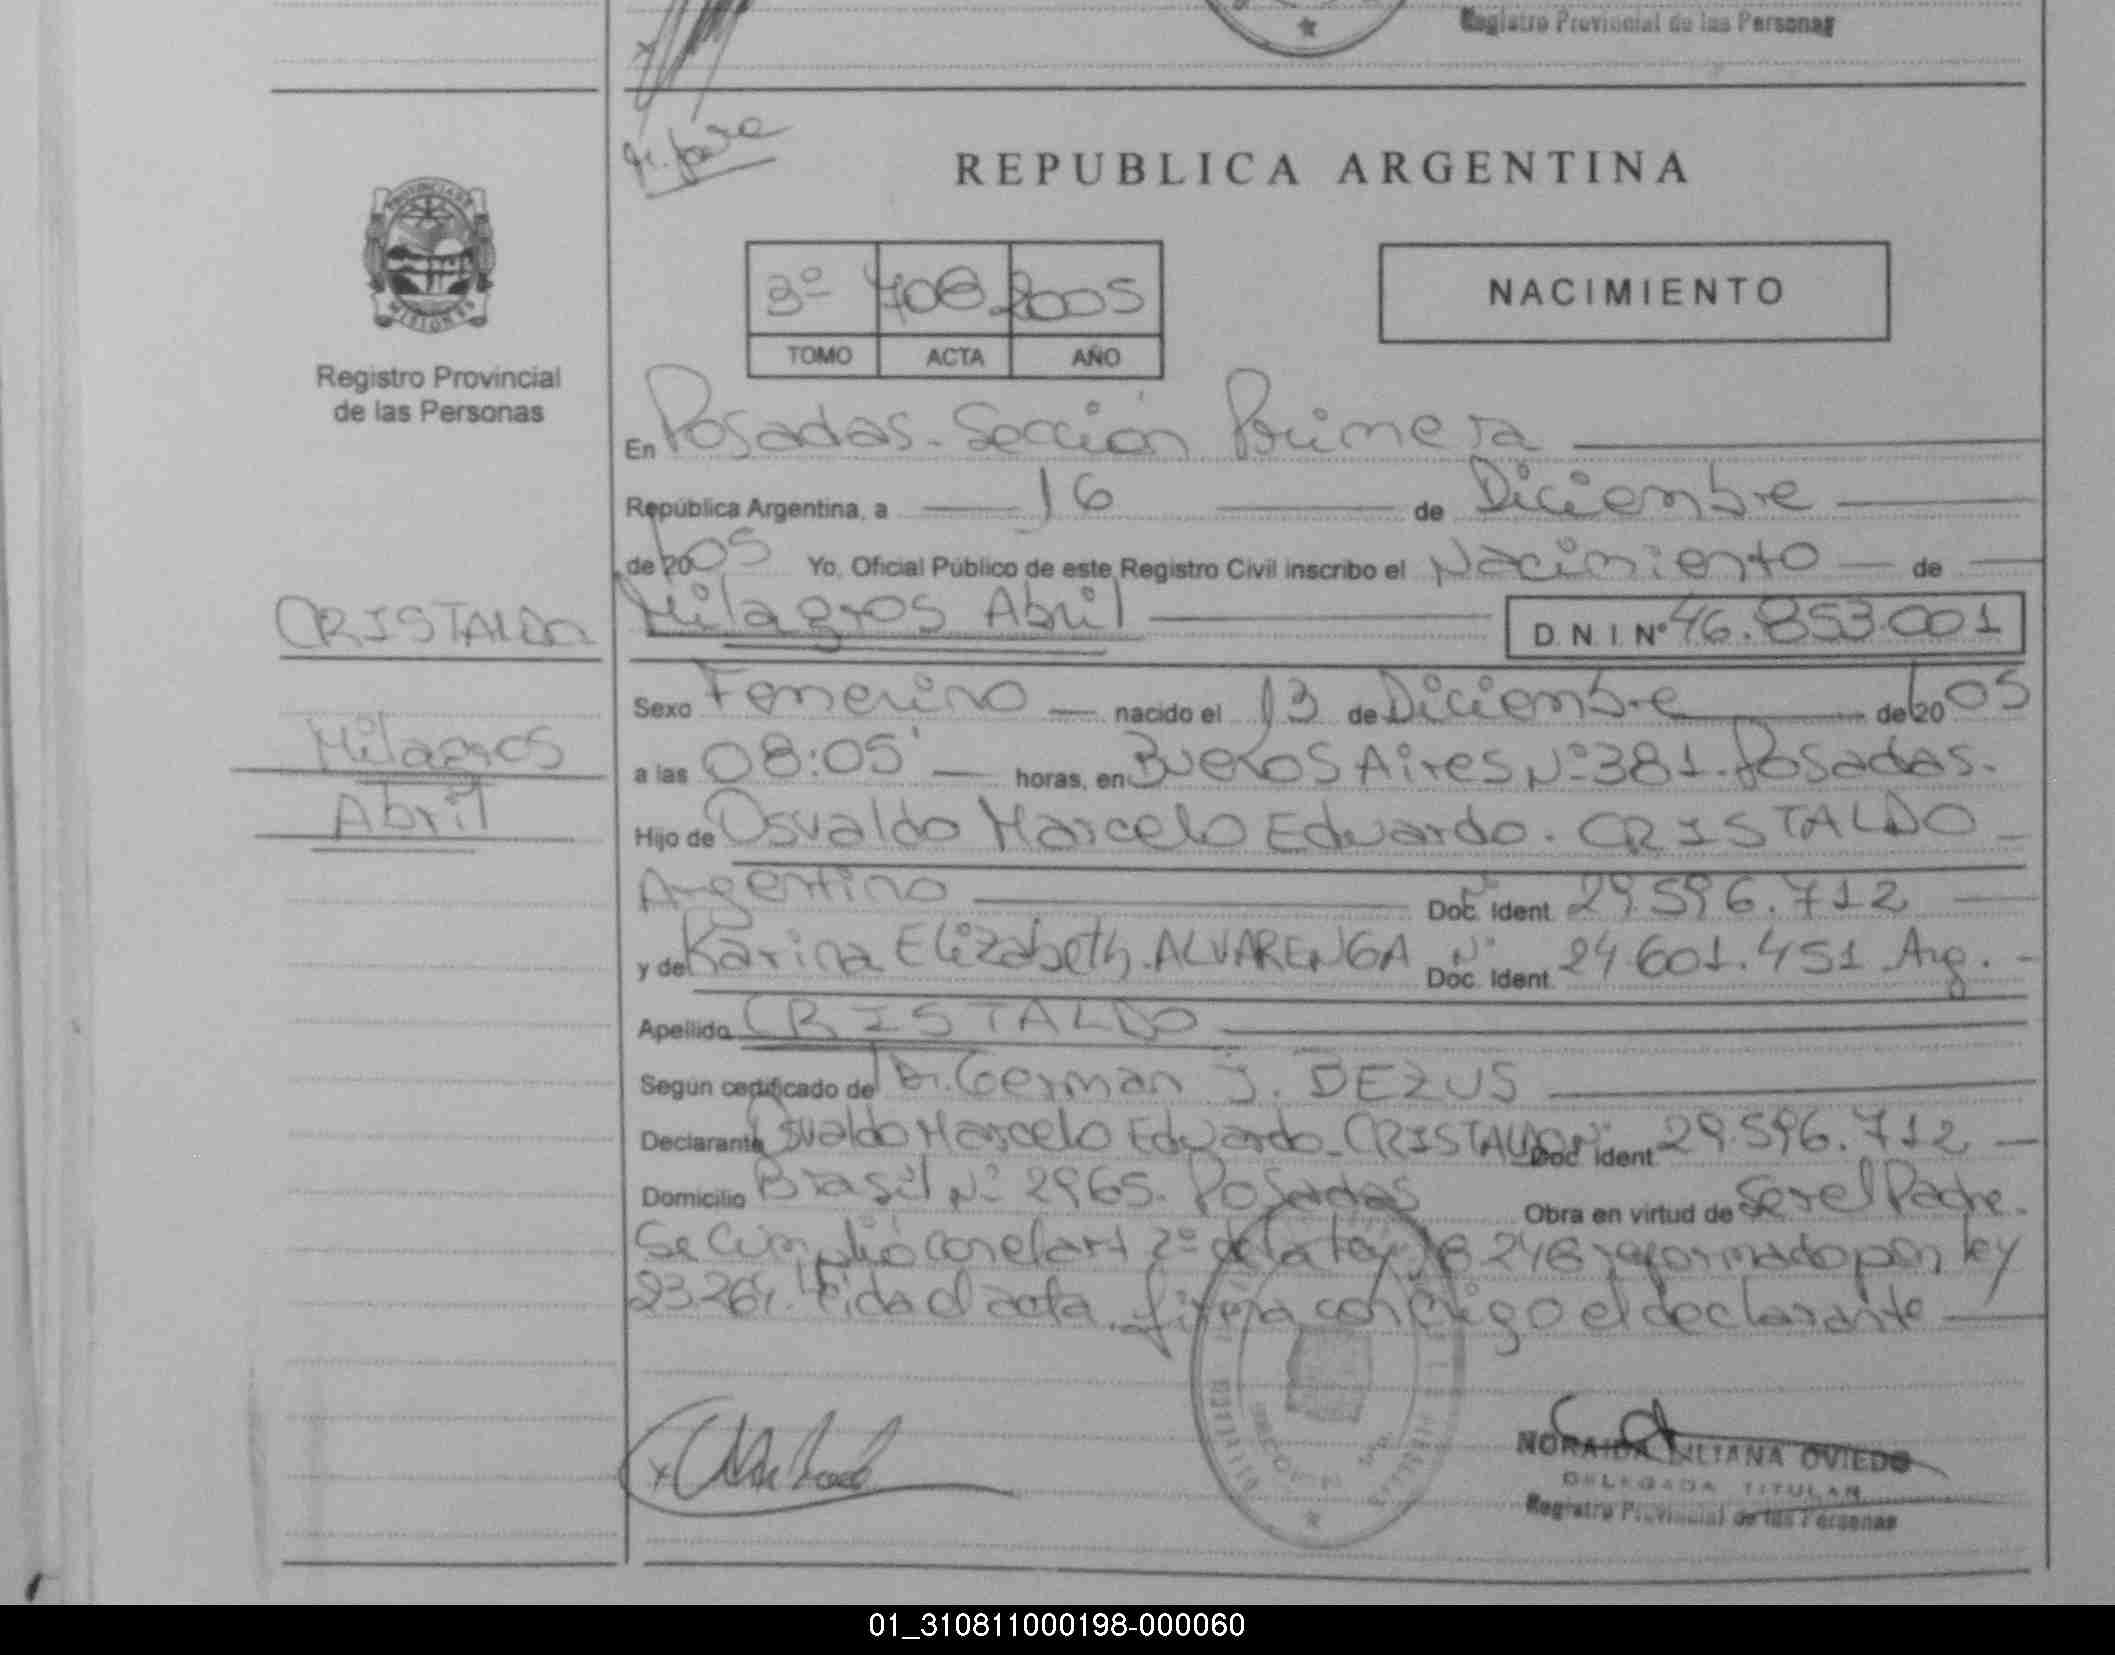 Registro Provincial de las Personas
REPUBLICA ARGENTINA
PROVINCIA DE
MISIONES
Registro Provincial
de las Personas
3º 708 2005
TOMO ACTA AÑO
NACIMIENTO
En Posadas - Sección Primera
República Argentina, a 16 de Diciembre
de 2005 Yo, Oficial Público de este Registro Civil inscribo el Nacimiento de
CRISTALDO
Milagros Abril
D. N. I. Nº 46.853.001
Milagros
Abril
Sexo Femenino nacido el 13 de Diciembre de 2005
a las 08:05' horas, en Buenos Aires Nº 381. Posadas.
Hijo de Osvaldo Marcelo Eduardo. CRISTALDO
Argentino Doc. Ident. 29.596.712
y de Karina Elizabeth. ALVARENGA Nº Doc. Ident. 24.601.451 Arg.
Apellido CRISTALDO
Según certificado de Dr. German J. BEZUS
Declarante Osvaldo Marcelo Eduardo - CRISTALDO Doc. Ident. 29.596.712
Domicilio Brasil Nº 2965. Posadas Obra en virtud de Ser el Padre.
Se cumplió con el art 2º de la Ley 18248 reformado por ley
23264. Leida el acta. firma conmigo el declarante
NORAIDA LILIANA OVIEDO
DELEGADA TITULAR
Registro Provincial de las Personas
01_310811000198-000060